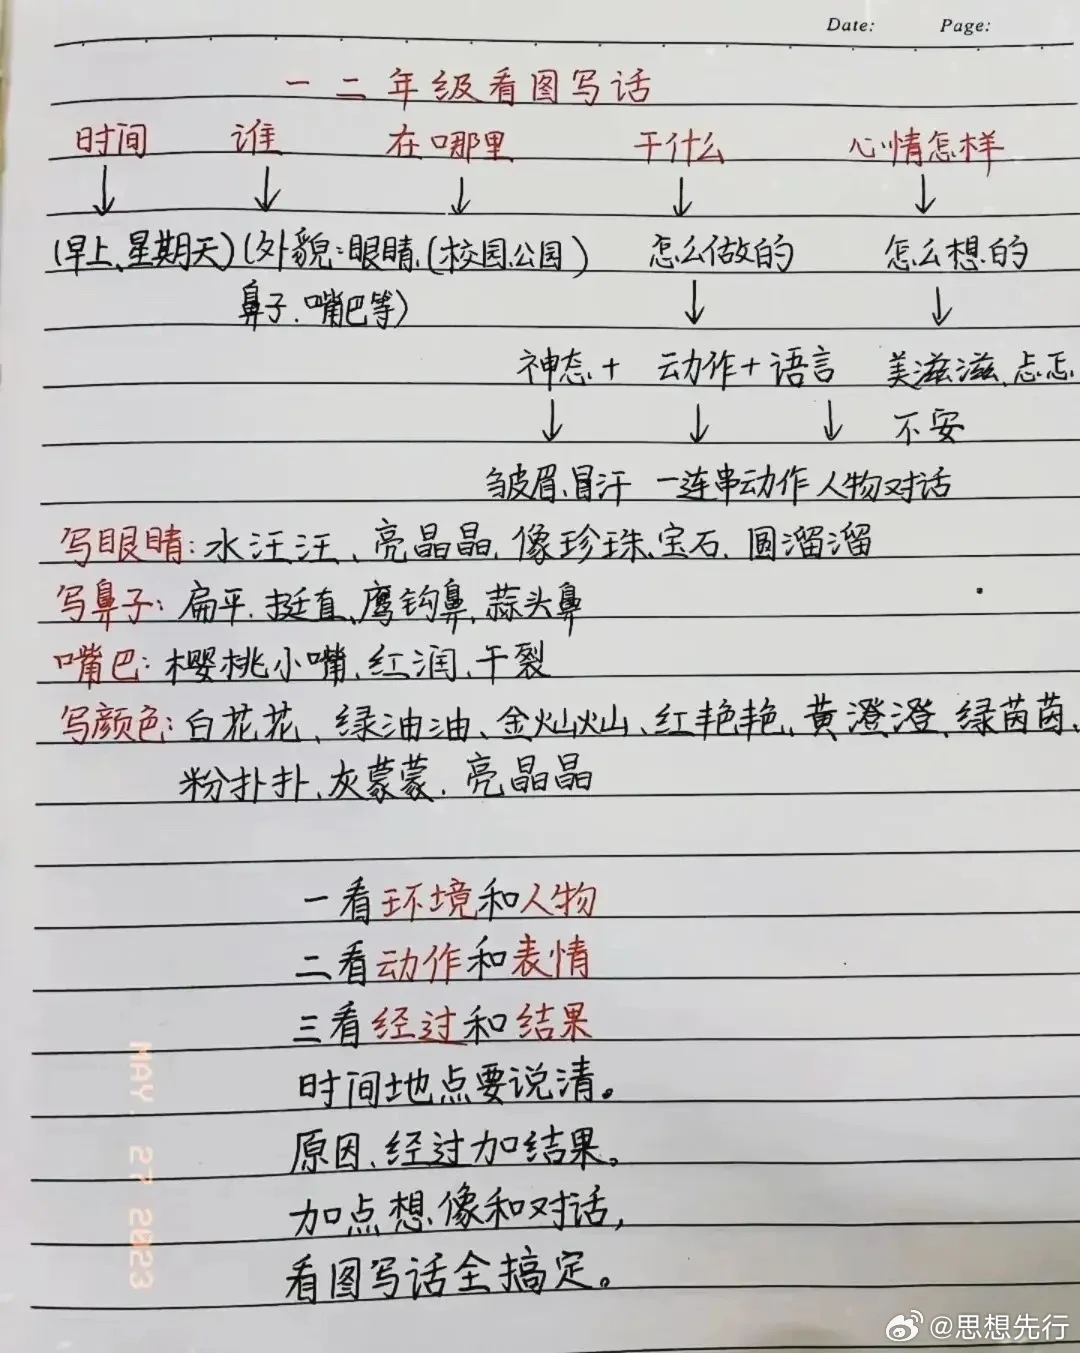 Date: Page:
一二年级看图写话
时间 谁 在哪里 干什么 心情怎样
(早上、星期天) (外貌:眼睛、(校园、公园) 怎么做的 怎么想的
鼻子、嘴巴等)
神态+ 动作+语言 美滋滋、忐忑
不安
皱眉、冒汗 一连串动作 人物对话
写眼睛:水汪汪、亮晶晶、像珍珠、宝石、圆溜溜
写鼻子:扁平、挺直、鹰钩鼻、蒜头鼻
嘴巴:樱桃小嘴、红润、干裂
写颜色:白花花、绿油油、金灿灿、红艳艳、黄澄澄、绿茵茵、
粉扑扑、灰蒙蒙、亮晶晶
一看环境和人物
二看动作和表情
三看经过和结果
时间地点要说清。
原因、经过加结果。
加点想像和对话,
看图写话全搞定。
MAY. 27 2023
@思想先行